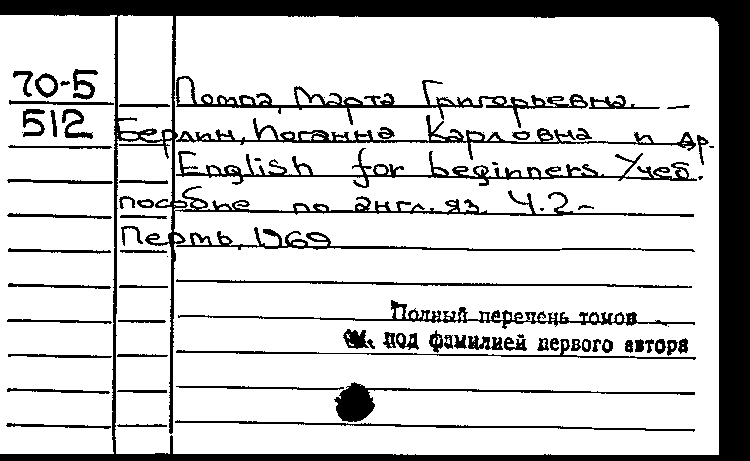 70-5
Помпа, Марта Григорьевна. —
512
Берлин, Иоганна Карловна и др.
English for beginners. Учеб.
пособие по англ. яз. Ч.2-
Пермь, 1969
Полный перечень томов
см. под фамилией первого автора